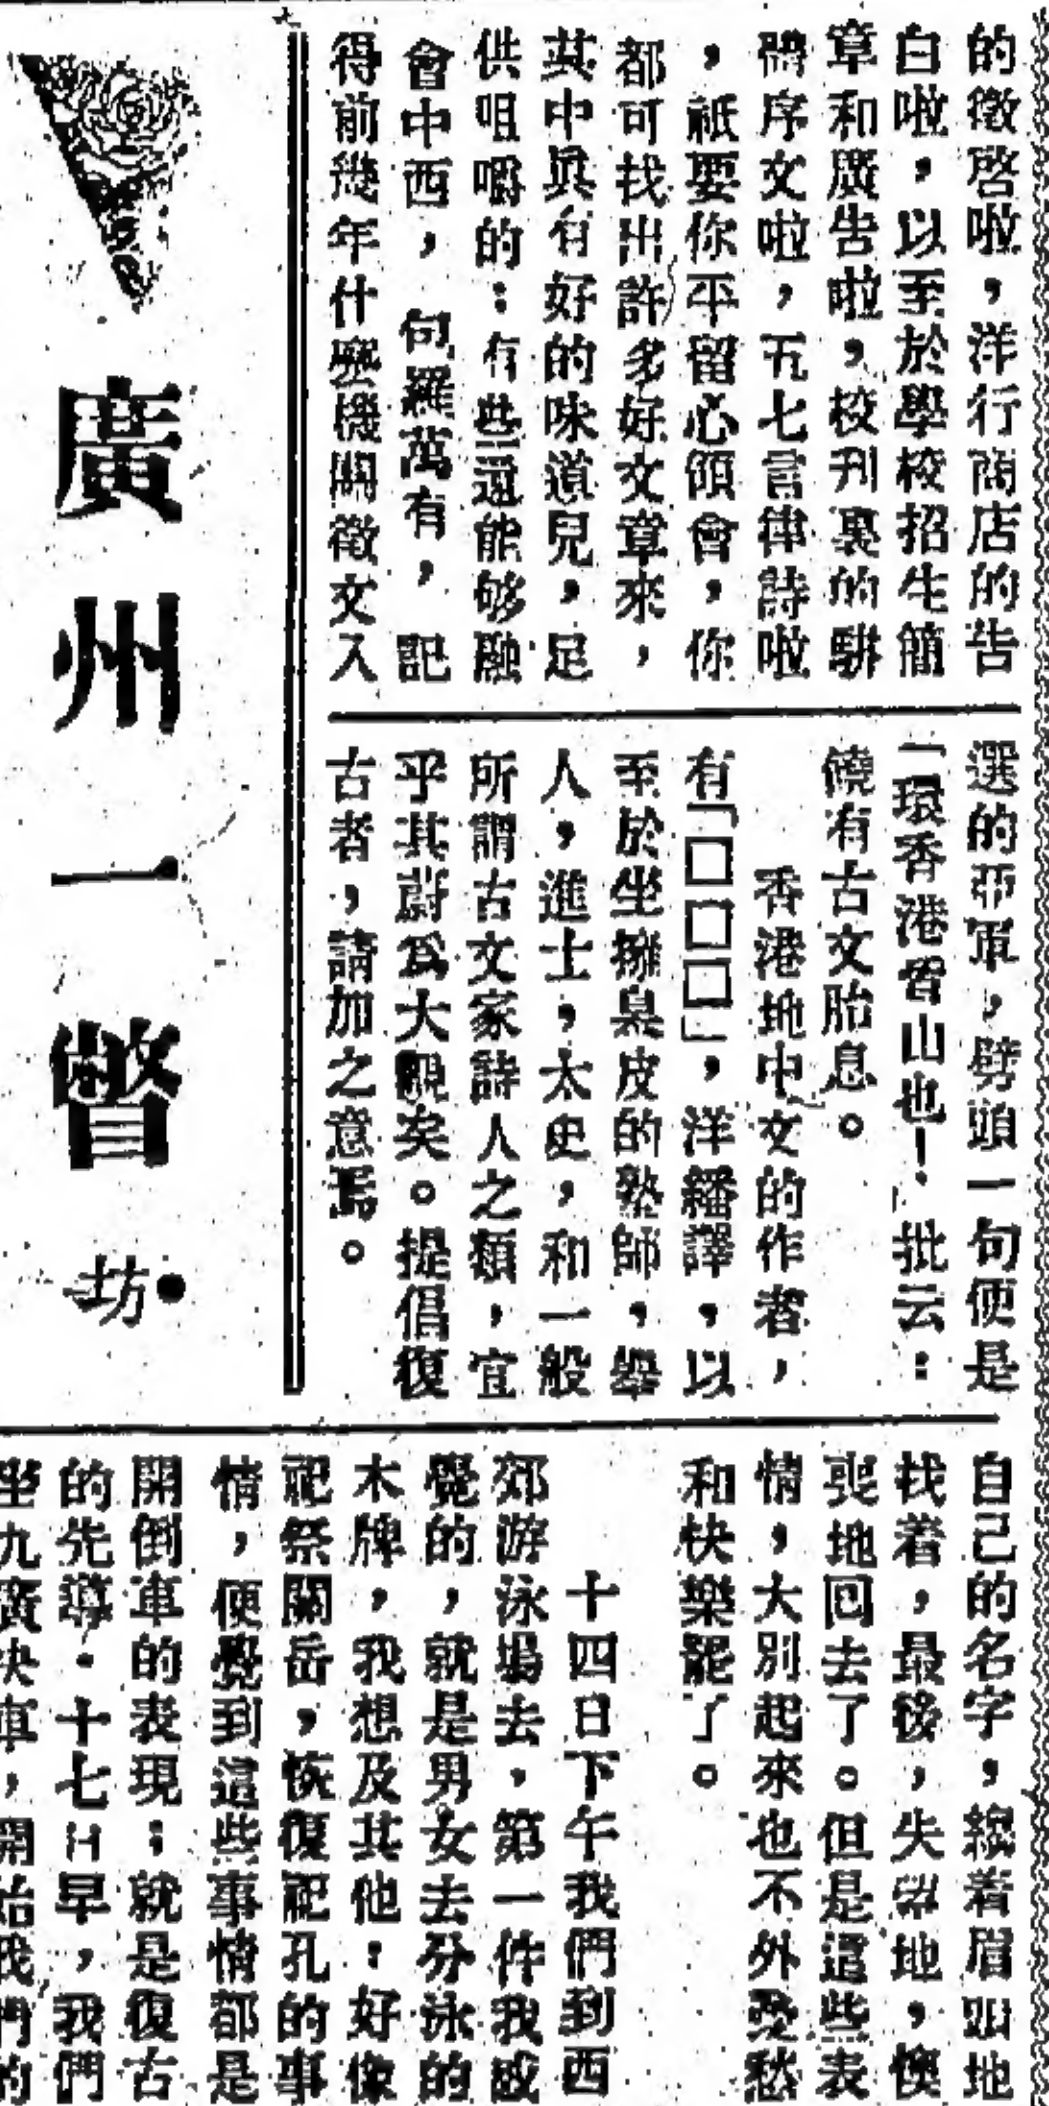 的徵啓啦，洋行商店的告
白啦，以至於學校招生簡
章和廣告啦，校刊裏的駢
體序文啦，五七言律詩啦
，祗要你平留心領會，你
都可找出許多好文章來，
其中眞有好的味道兒，足
供咀嚼的：有些還能够融
會中西，包羅萬有，記
得前幾年什麽機關徵文入
選的亞軍，劈頭一句便是
「環香港皆山也！批云：
饒有古文胎息。
香港地中文的作者，
有「□□□」，洋繙譯，以
至於坐擁臯皮的塾師，舉
人，進士，太史，和一般
所謂古文家詩人之類，宜
乎其蔚爲大觀矣。提倡復
古者，請加之意焉。
廣州一瞥
坊
自己的名字，縐着眉頭地
找着，最後，失望地，懊
喪地回去了。但是這些表
情，大別起來也不外憂愁
和快樂罷了。
十四日下午我們到西
郊游泳塲去，第一件我感
覺的，就是男女去分泳的
木牌，我想及其他：好像
祀祭關岳，恢復祀孔的事
情，便覺到這些事情都是
開倒車的表現：就是復古
的先導．十七日早，我們
坐九廣快車，開始我們的